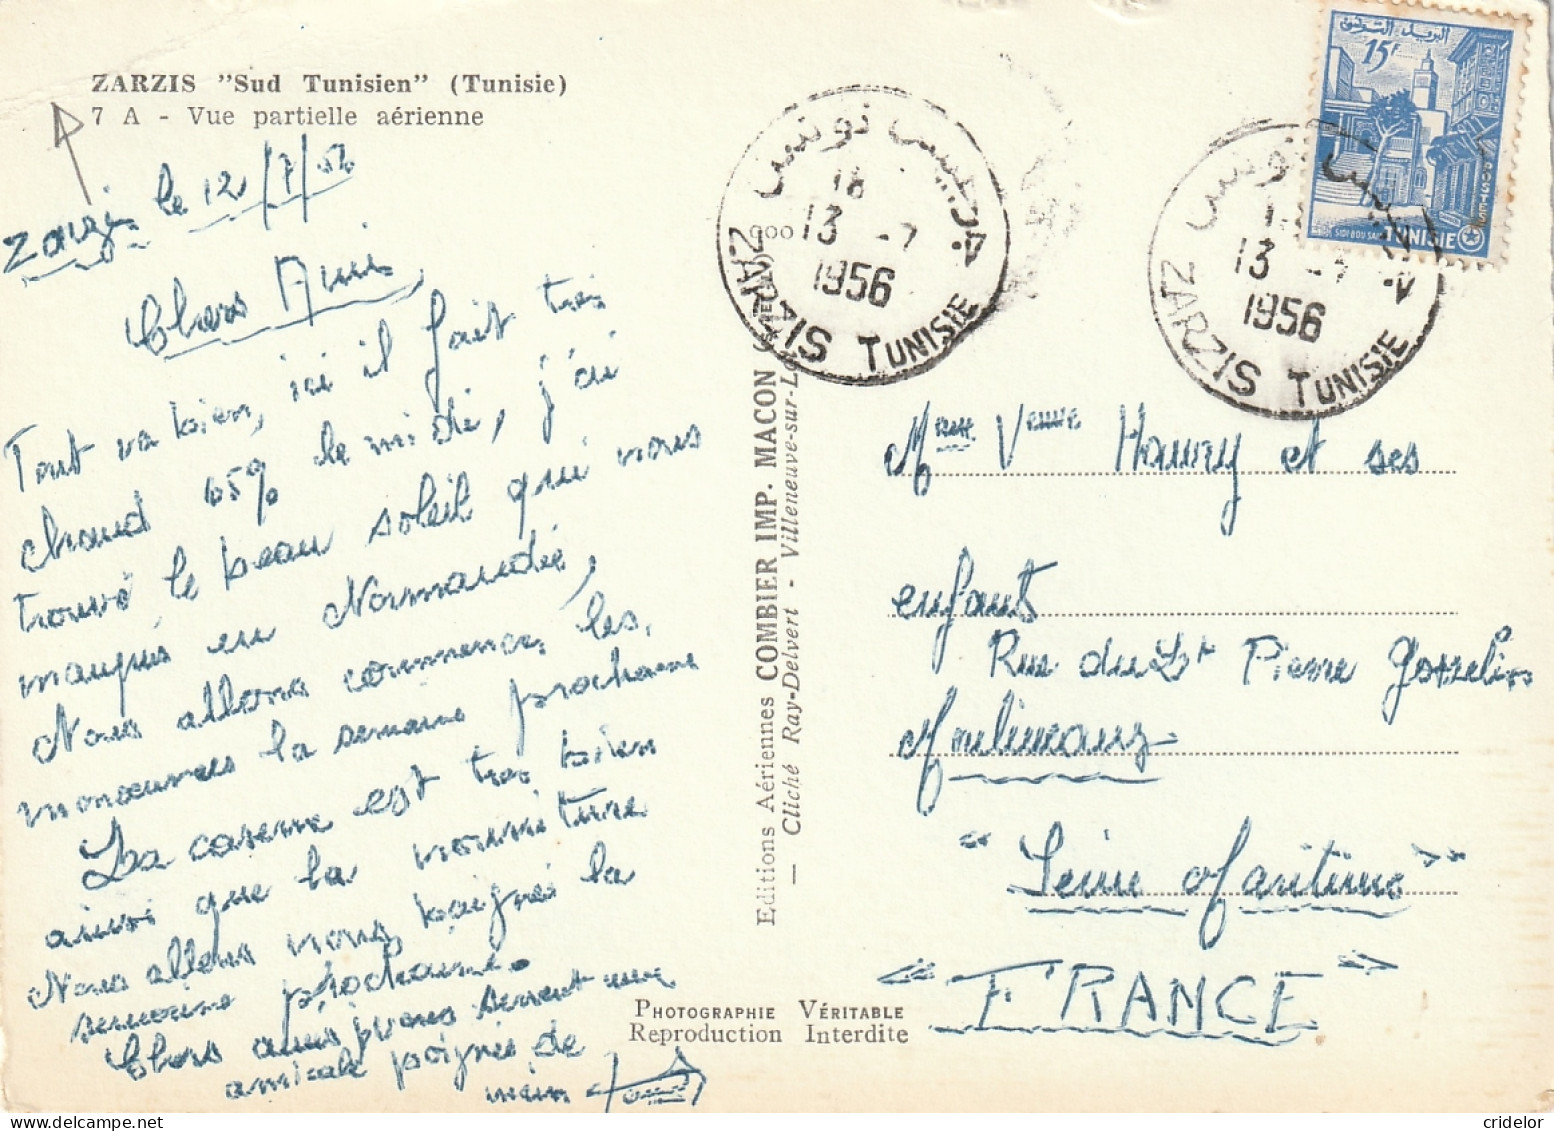 ZARZIS "Sud Tunisien" (Tunisie)
7 A - Vue partielle aérienne
Zarzis le 12/7/56
Chers Amis
Tout va bien, ici il fait très
chaud 65% le midi, j'ai
trouvé le beau soleil qui nous
manquis en Normandie,
Nous allons commencer les
manœuvres la semaine prochaine
La caserne est très bien
ainsi que la nourriture
Nous allons nous baigné la
semaine prochaine.
Chers amis je vous serrent une
amicale poignée de
main
Editions Aériennes COMBIER IMP. MACON
— Cliché Ray-Delvert - Villeneuve-sur-Lo
PHOTOGRAPHIE VÉRITABLE
Reproduction Interdite
قرجيس تونس
18
13 -7
1956
ZARZIS TUNISIE
قرجيس تونس
13 -7
1956
ZARZIS TUNISIE
البريد التونسي
15F
POSTES
SIDI BOU SAID
TUNISIE
Mme Veuve Hauvry et ses
enfants
Rue du Lt Pierre Gosselin
Moulineaux
"Seine Maritime"
"FRANCE"
cridelor